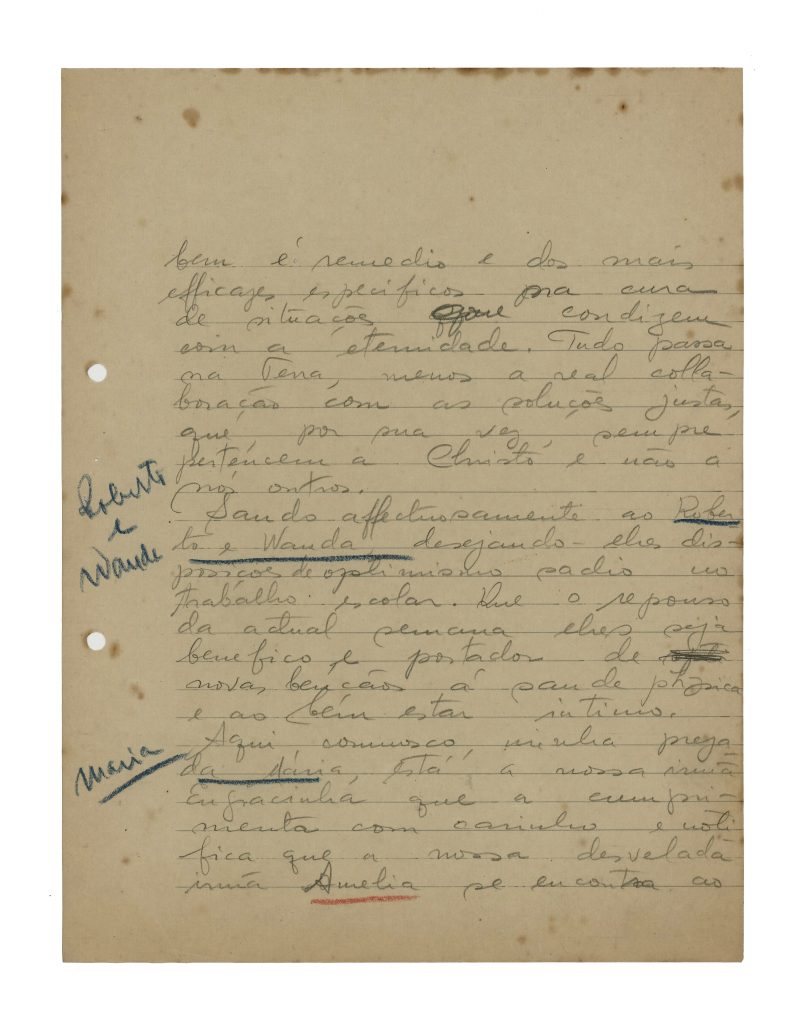 bem é remedio e dos mais
efficazes especificos pra cura
de situações que condizem
com a eternidade. Tudo passa
na Terra, menos a real colla-
boração com as soluções justas,
que, por sua vez, sempre
pertencem a Christo e não a
nós outros.
Roberto
e
Wanda
Saudo affectuosamente ao Rober-
to e Wanda desejando-lhes dis-
posições de optimismo sadio no
trabalho escolar. Que o repouso
da actual semana lhes seja
benefico e portador de
novas bençãos á saude physica
e ao bem estar intimo.
Maria
Aqui comnosco, minha preza
da Maria, está a nossa irmã
Engracinha que a cumpri-
menta com carinho e noti
fica que a nossa desvelada
irmã Amelia se encontra ao